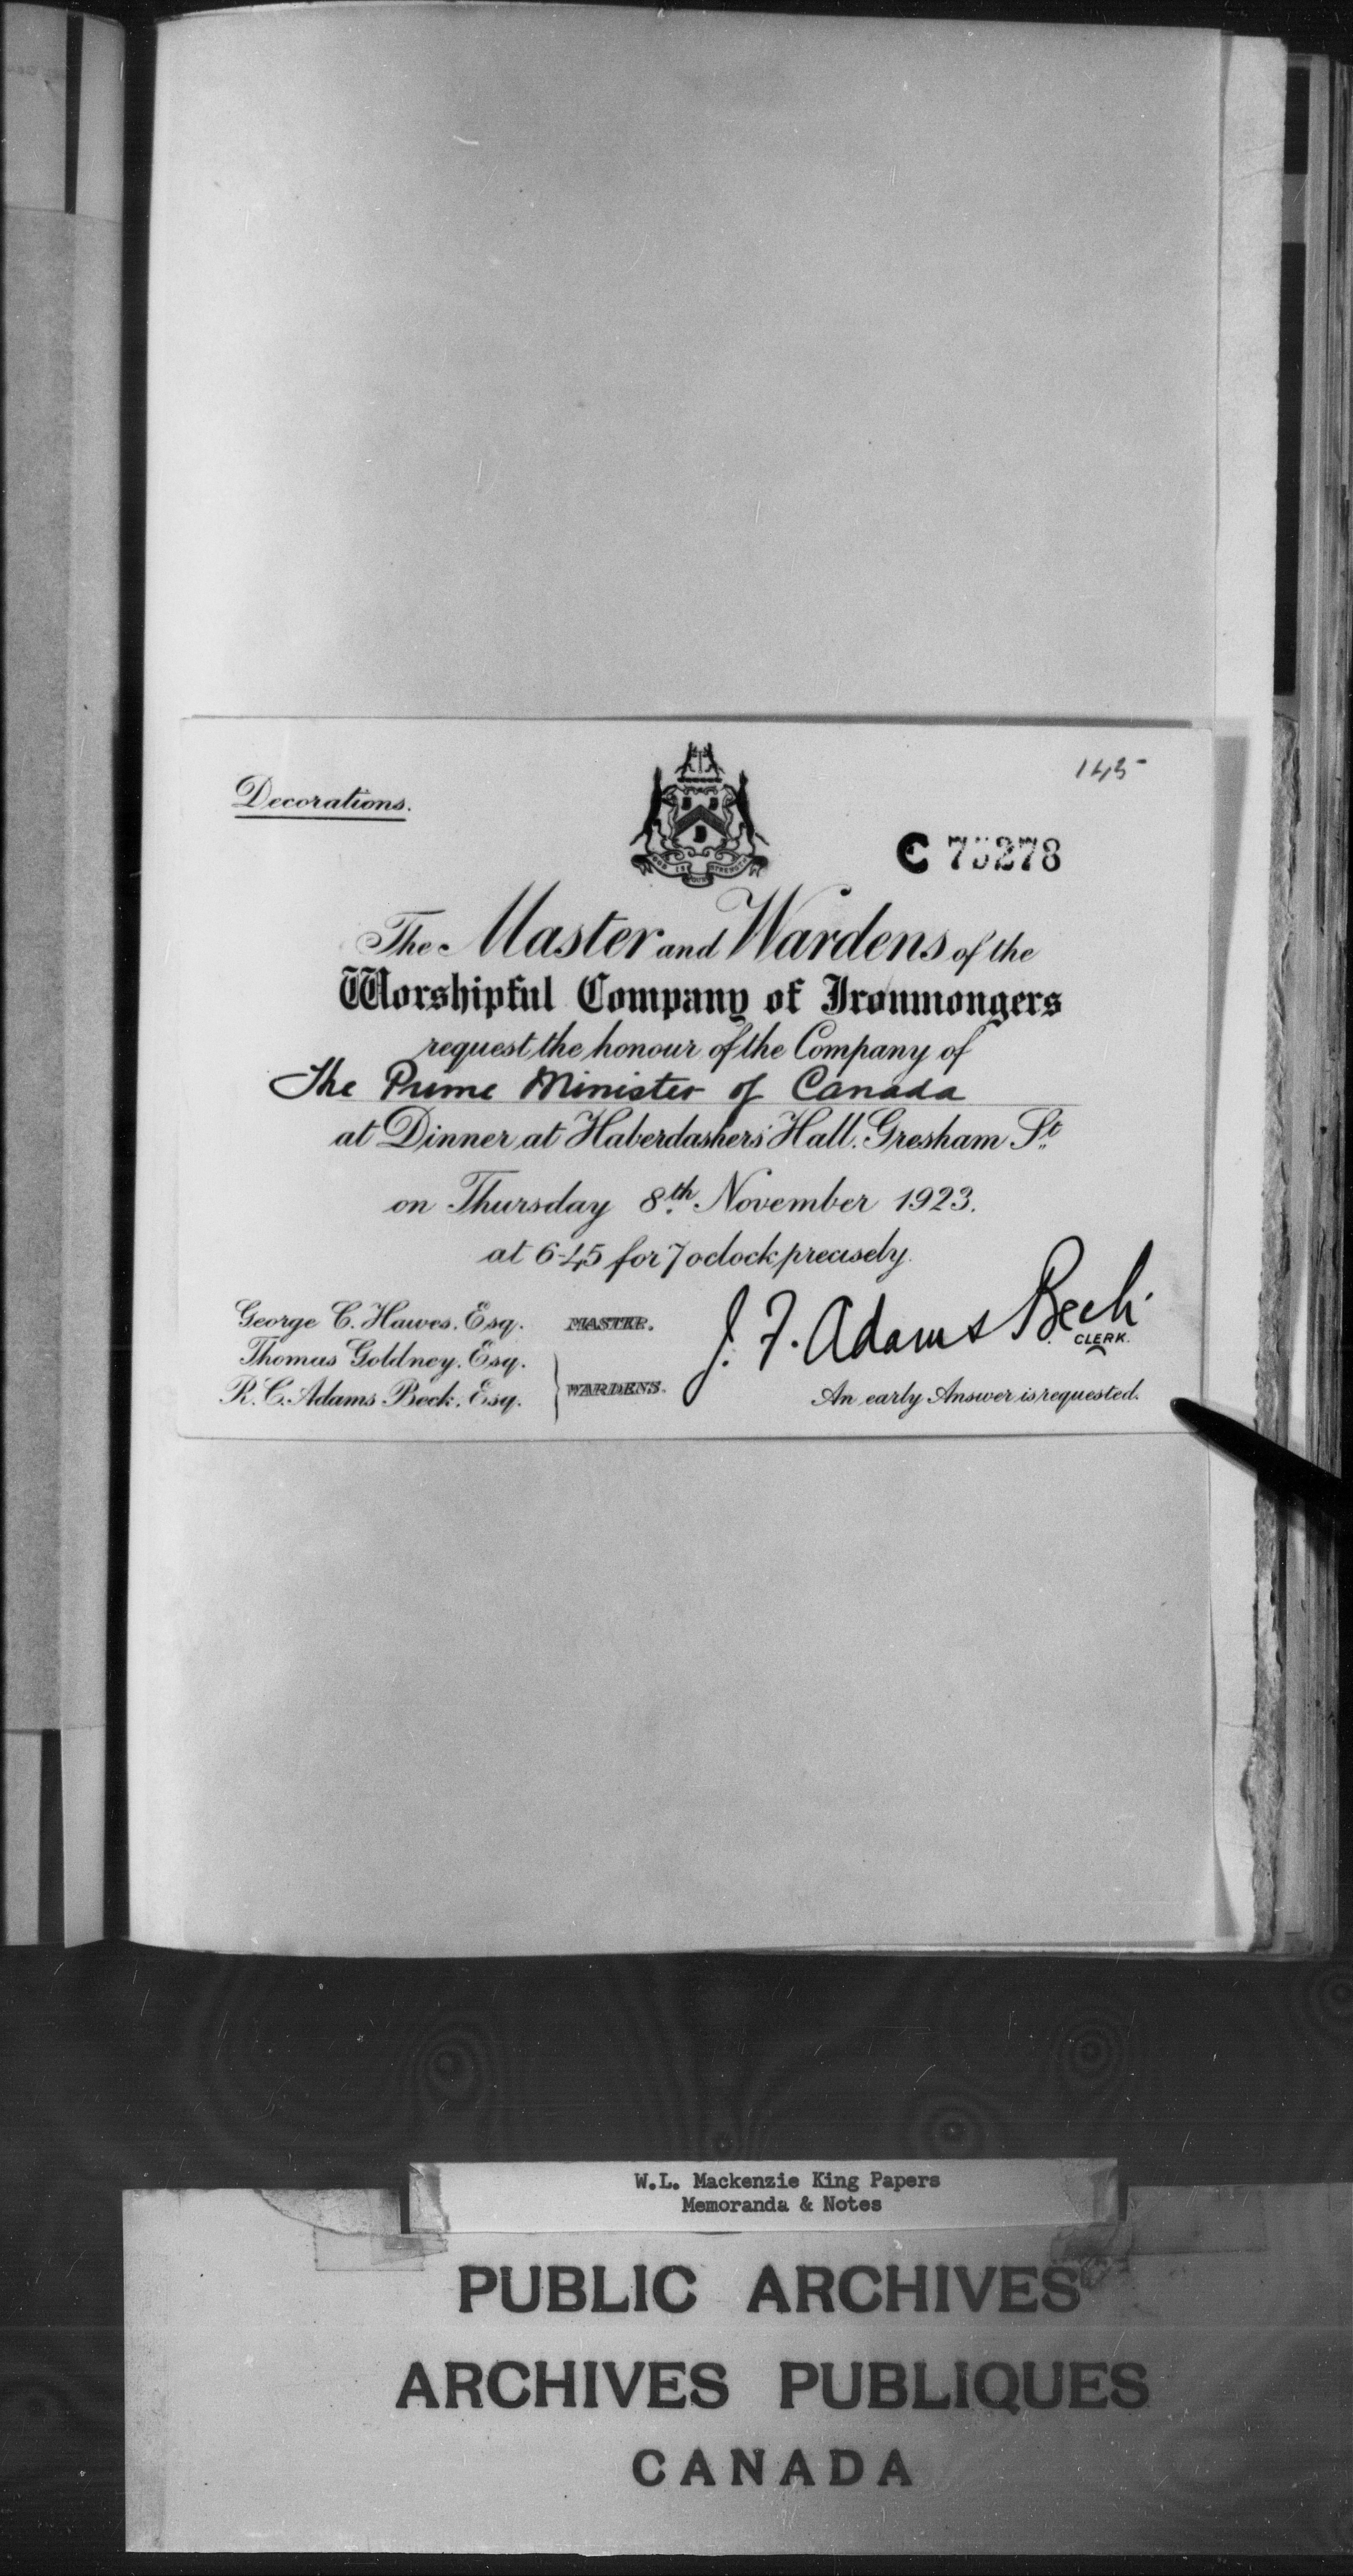 Decorations.
145
GOD IS OUR STRENGTH
The Master and Wardens of the
Worshipful Company of Ironmongers
request the honour of the Company of
The Prime Minister of Canada
at Dinner at Haberdashers' Hall. Gresham St.
on Thursday 8th November 1923.
at 6-45 for 7 oclock precisely.
George C. Hawes. Esq. MASTER.
Thomas Goldney. Esq.
R. C. Adams Beck. Esq. WARDENS.
J. F. Adams Beck
CLERK.
An early Answer is requested.
W.L. Mackenzie King Papers
Memoranda & Notes
PUBLIC ARCHIVES
ARCHIVES PUBLIQUES
CANADA